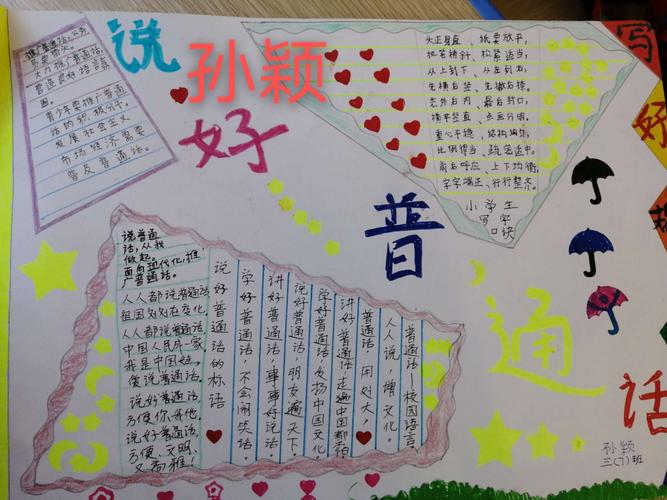 说
好
普
通
话
写
好
孙颖
推广普通话，公务
员要带头。
大力推广普通话，
营造良好语言
围。
青少年要推广普通
话的积极分子。
发展社会主义
市场经济需要
普及普通话。
大正身直、纸要放平，
从上到下、从左到右，
先横后竖、先撇后捺，
先外后内、最后封口，
横平竖直、点画分明，
重心平稳、结构均匀，
比例得当、疏密适中，
前后呼应、上下均衡
字字端正、行行整齐。
小学生
写字
口诀
说普通
话，从我
做起。
面向现代化，推
广普通话。
人人都说普通话，
祖国处处在变化，
人人都说普通话，
中国人民外一家，
我是中国娃，
爱说普通话。
说好普通话，
方便你我他。
说好普通话，
方便、文明、
又高雅！
说好普通话的标语
学好普通话，不会闹笑话。
讲好普通话，事事好说话。
说好普通话，朋友遍天下。
学好普通话，发扬中国文化
讲好普通话，走遍中国都不怕
普通话，用处大，
人人说，增文化。
普通话——校园语言。
孙颖
三(7)班